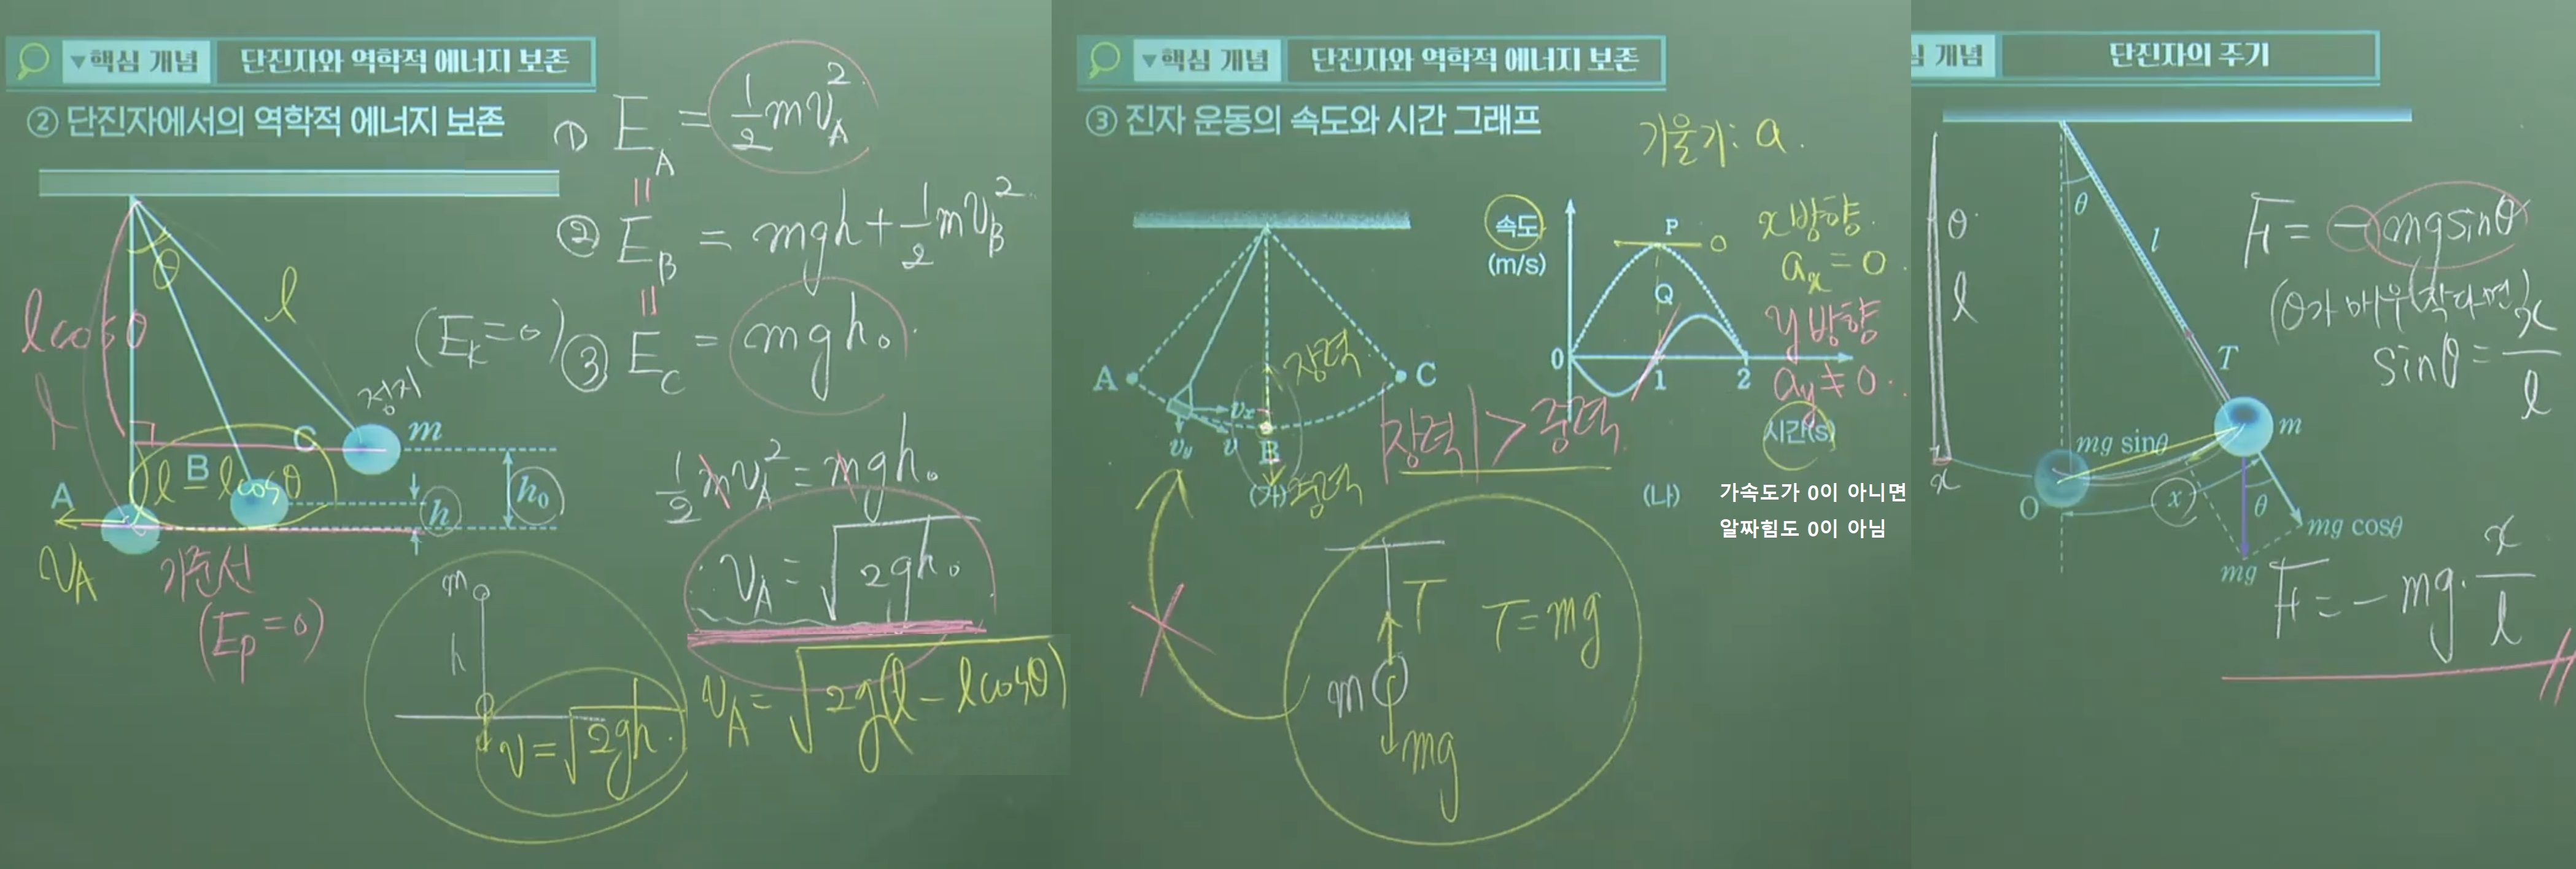 ▼핵심 개념 단진자와 역학적 에너지 보존
② 단진자에서의 역학적 에너지 보존
θ
l
lcosθ
l
A
B
C
정지
m
l-lcosθ
h
h₀
V_A
기준선
(E_P=0)
① E_A = 1/2 mV_A²
||
② E_B = mgh + 1/2 mV_B²
||
(E_k=0) ③ E_C = mgh₀
1/2 mV_A² = mgh₀
V_A = √2gh₀
V_A = √2g(l-lcosθ)
m
h
V=√2gh
▼핵심 개념 단진자와 역학적 에너지 보존
③ 진자 운동의 속도와 시간 그래프
기울기: a
A
B
C
v_x
v_y
v
장력
중력
(가)
|장력| > 중력
속도
(m/s)
P
0
Q
0
1
2
시간(s)
(나)
x방향
a_x = 0
y방향
a_y ≠ 0
가속도가 0이 아니면
알짜힘도 0이 아님
T
m
mg
T = mg
개념 단진자의 주기
θ
l
x
θ
l
T
m
O
mg sinθ
x
θ
mg cosθ
mg
F = -mgsinθ
(θ가 매우 작다면)
sinθ = x/l
F = -mg · x/l